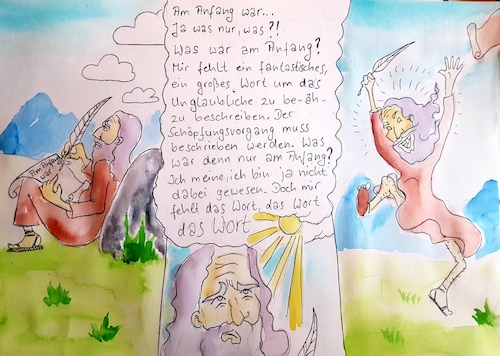 Am Anfang war
Am Anfang war...
Ja was nur, was?!
Was war am Anfang?
Mir fehlt ein fantastisches,
ein großes Wort um das
Unglaubliche zu be-äh-
zu beschreiben. Der
Schöpfungsvorgang muss
beschrieben werden. Was
war denn nur am Anfang?
Ich meine, ich bin ja nicht
dabei gewesen. Doch mir
fehlt das Wort, das Wort
das Wort